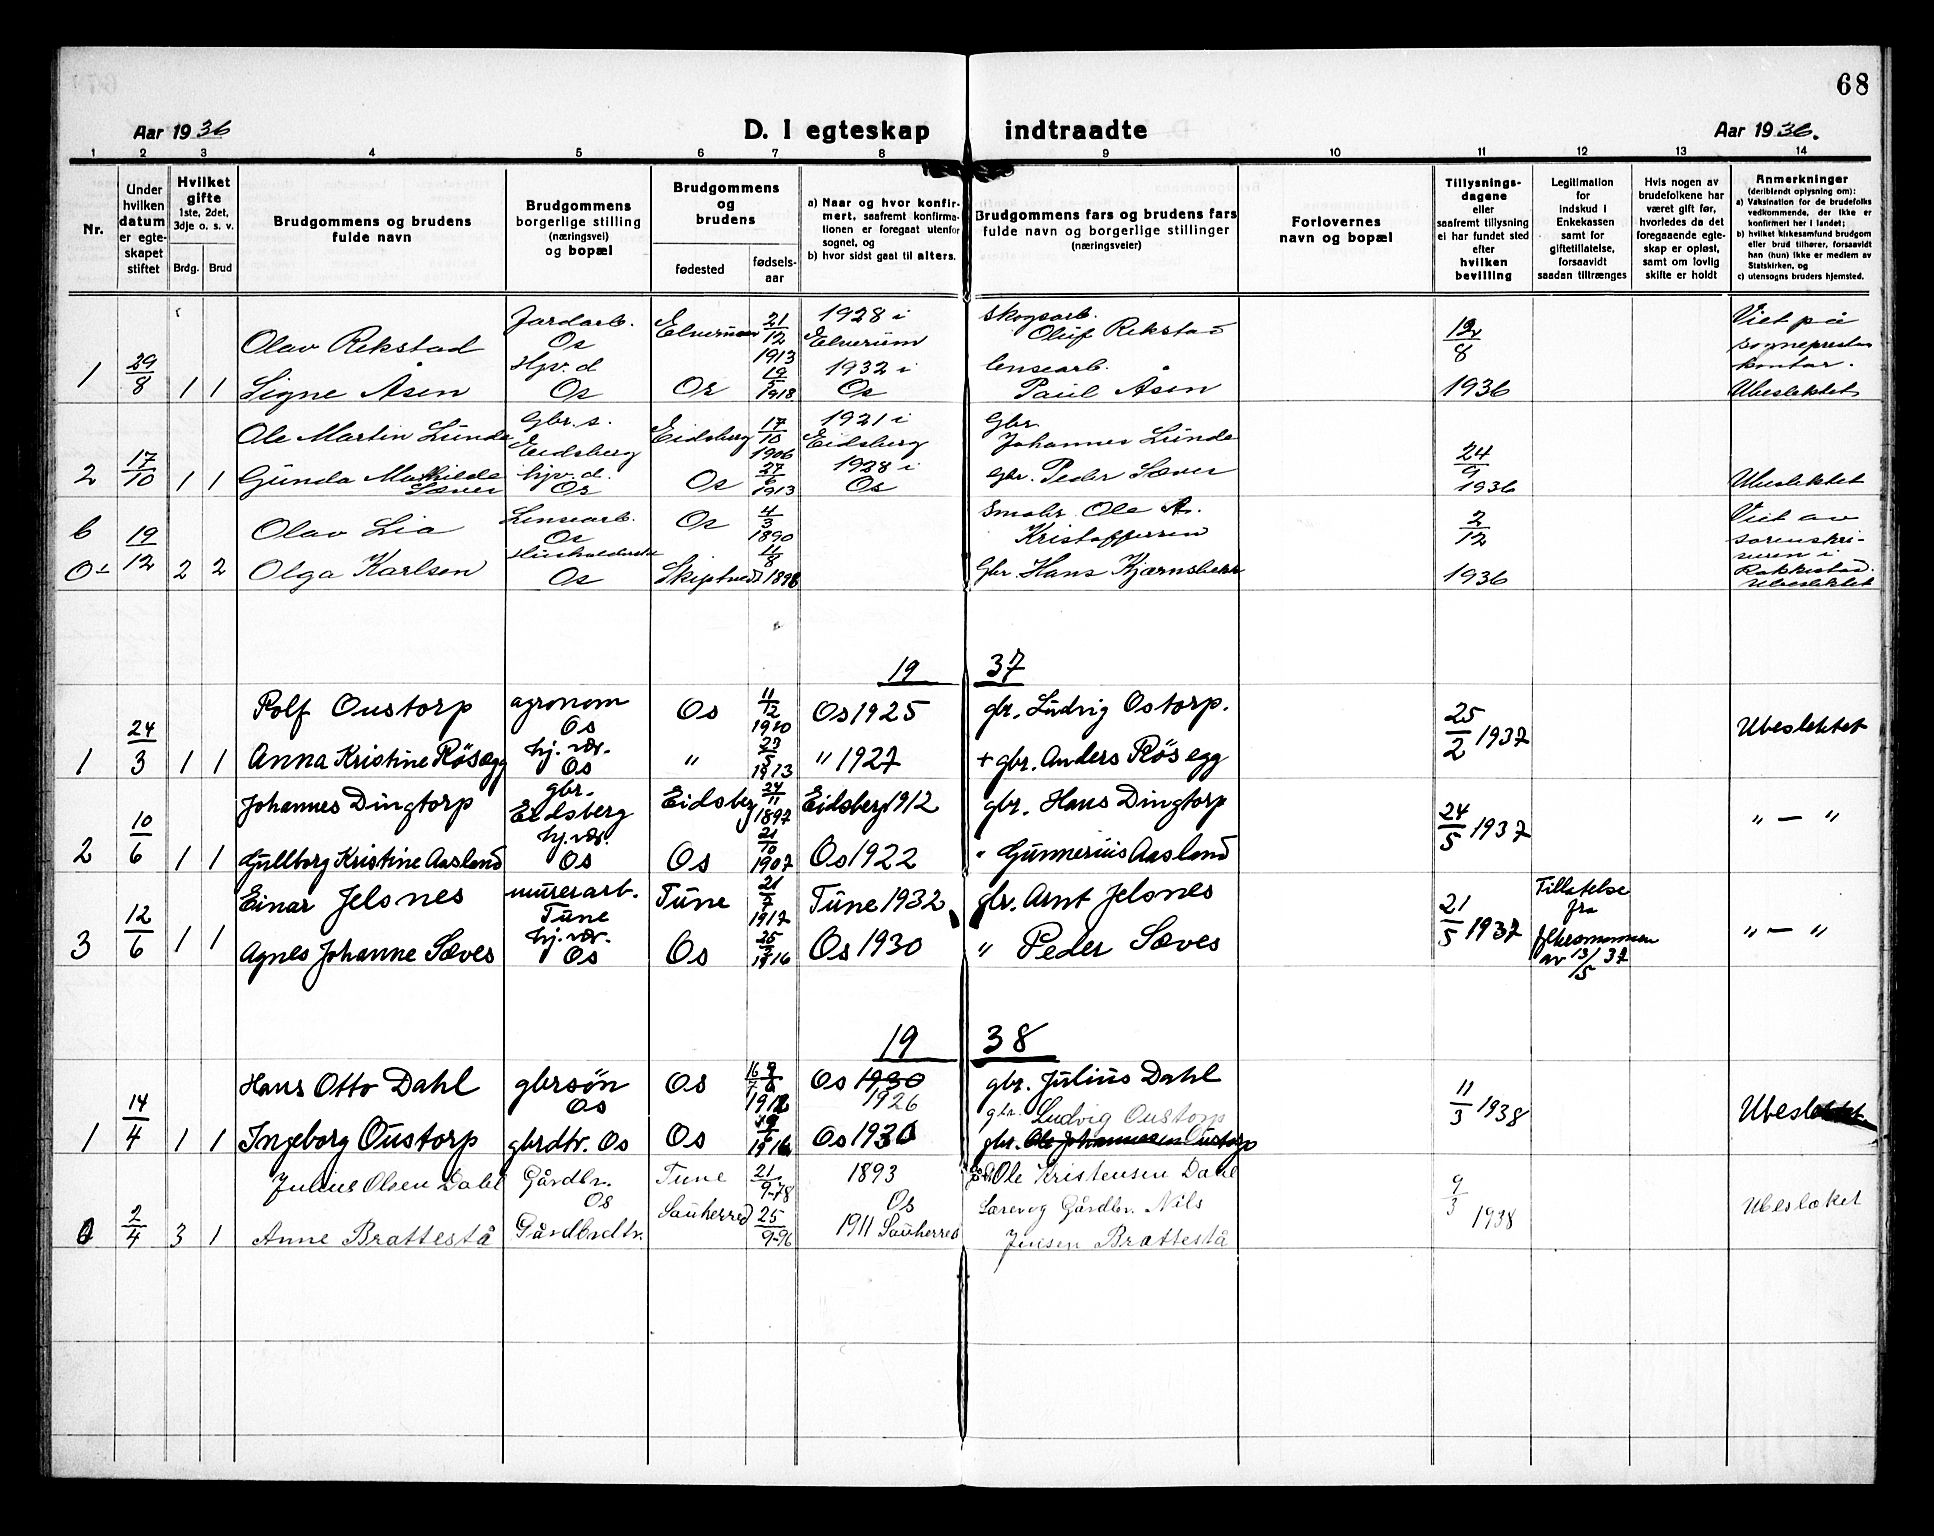 68
Aar 1936
D. I egteskap indtraadte
Aar 1936.
1 2 3 4 5 6 7 8 9 10 11 12 13 14
Nr.
Under hvilken datum er egteskapet stiftet
Hvilket gifte 1ste, 2det, 3dje o. s. v.
Brdg. Brud
Brudgommens og brudens fulde navn
Brudgommens borgerlige stilling (næringsvei) og bopæl
Brudgommens og brudens
fødested
fødselsaar
a) Naar og hvor konfirmert, saafremt konfirmationen er foregaat utenfor sognet, og
b) hvor sidst gaat til alters.
Brudgommens fars og brudens fars fulde navn og borgerlige stillinger (næringsveier)
Forlovernes navn og bopæl
Tillysningsdagene eller saafremt tillysning ei har fundet sted efter hvilken bevilling
Legitimation for Indskud i Enkekassen samt for giftetillatelse, forsaavidt saadan tiltrænges
Hvis nogen av brudefolkene har været gift før, hvorledes da det foregaaende egteskap er opløst, samt om lovlig skifte er holdt
Anmerkninger (deriblendt oplysning om):
a) Vaksination for de brudefolks vedkommende, der ikke er konfirmert her i landet;
b) hvilket kirkesamfund brudgom eller brud tilhører, forsaavidt han (hun) ikke er medlem av Statskirken, og
c) utensogns bruders hjemsted.
Olav Rekstad Jordarb. Os Elverum 21/12 1913 1928 i Elverum Skogsarb. Oluf Rekstad 12/8 Viet på sogneprestens kontor.
1 29/8 1 1 Signe Åsen Hpv. d Os Os 19/5 1918 1932 i Os Lensearb. Paul Åsen 1936 Ubeslektet
Ole Martin Lunde Gbr. s. Eidsberg Eidsberg 17/10 1906 1921 i Eidsberg Gbr Johannes Lunde 24/9
2 17/10 1 1 Gunda Mathilde Sæves hjv. d. Os Os 27/6 1913 1928 i Os Gbr. Peder Sæves 1936 Ubeslektet
b 19/12 Olav Lia Lensearb. Os Os 4/3 1890 Smabr. Ole A. Kristoffersen 2/12 Viet av sorenskriveren i Rakkestad.
2 2 Olga Karlsen Husholderske Os Skiptvedt 1898 Gbr. Hans Kjærnsbekk 1936 Ubeslektet
19 37
Rolf Oustorp agronom Os Os 11/12 1910 Os 1925 gbr. Ludvig Ostorp. 25/2 1937 Ubeslektet
1 24/3 1 1 Anna Kristine Røsægg hj. vær. Os " 1913 " 1927 + gbr. Anders Røsegg
Johannes Dingtorp gbr. Eidsberg Eidsberg 24/11 1897 Eidsberg 1912 gbr. Hans Dingtorp 24/5 1937 " — "
2 10/6 1 1 Gullborg Kristine Aasland hj. vær. Os Os 21/10 1907 Os 1922 " Gunnerius Aasland
Einar Jelsnes murerarb. Tune Tune 21/7 1917 Tune 1932 gbr. Arnt Jelsnes 21/5 1937 Tillatelse fra fylkesmannen av 13/5 37 " — "
3 12/6 1 1 Agnes Johanne Sæves hj. vær. Os Os 1916 Os 1930 " Peder Sæves
19 38
Hans Otto Dahl gbrsøn Os Os Os 1930 1926 gbr. Julius Dahl 11/3 1938 Ubeslektet
gbr. Ludvig Oustorp
1 14/4 1 1 Ingeborg Oustorp gbrdtr. Os Os 1916 Os 1930 gbr. Ole Johannesen Oustorp
Julius Olsen Dahl Gårdbr. Os Tune 21/9-78 1893 Os Ole Kristensen Dahl 9/3 1938 Ubeslæket
2/4 3 1 Anne Brattestå Gårdbrdtr. Sauherred 25/9-96 1911 Sauherred Gårdbr. Nils Jensen Brattestå